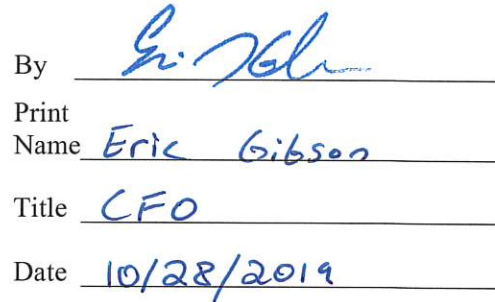 By
Print
Name Eric Gibson
Title CFO
Date 10/28/2019